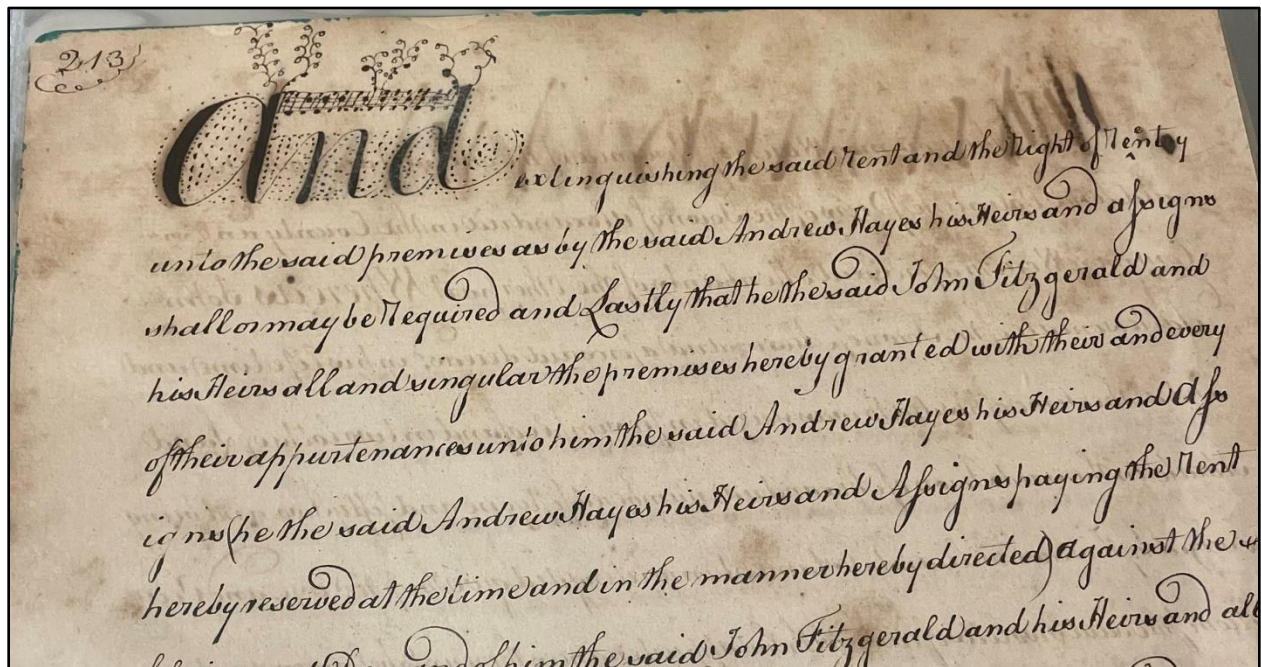 213
And extinguishing the said rent and the right of Rentry
unto the said premises as by the said Andrew Hayes his Heirs and assigns
shall or may be required and Lastly that he the said John Fitzgerald and
his Heirs all and singular the premises hereby granted with their and every
of their appurtenances unto him the said Andrew Hayes his Heirs and Ass
igns (he the said Andrew Hayes his Heirs and Assigns paying the rent
hereby reserved at the time and in the manner hereby directed) against the
of him the said John Fitzgerald and his Heirs and all